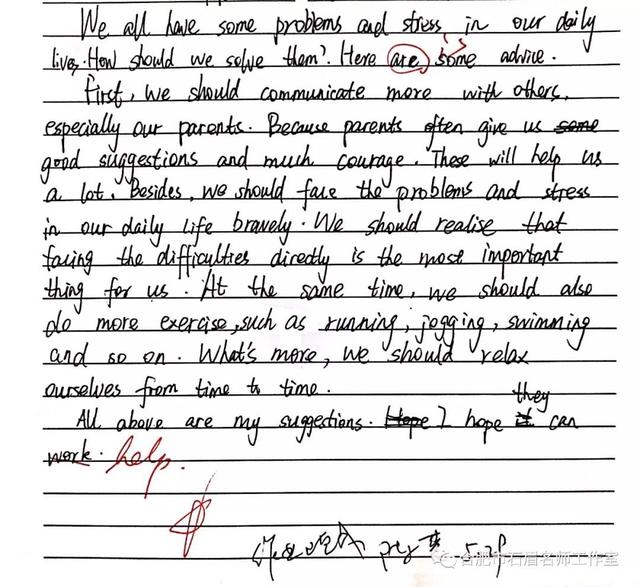 We all have some problems and stress in our daily
lives. How should we solve them? Here are some advice.
First, we should communicate more with others,
especially our parents. Because parents often give us some
good suggestions and much courage. These will help us
a lot. Besides, we should face the problems and stress
in our daily life bravely. We should realise that
facing the difficulties directly is the most important
thing for us. At the same time, we should also
do more exercise, such as running, jogging, swimming
and so on. What's more, we should relax
ourselves from time to time.
they
All above are my suggestions. Hope I hope it can
work. help.
合肥市石眉名师工作室